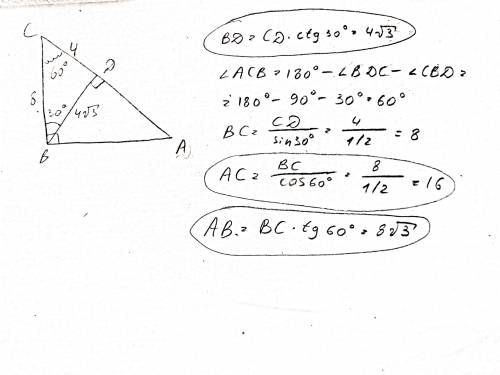 C
4
60°
D
8
30°
4√3
B
A
BD = CD · ctg 30° = 4√3
∠ACB = 180° - ∠BDC - ∠CBD =
= 180° - 90° - 30° = 60°
BC = CD / sin30° = 4 / 1/2 = 8
AC = BC / cos60° = 8 / 1/2 = 16
AB = BC · tg 60° = 8√3